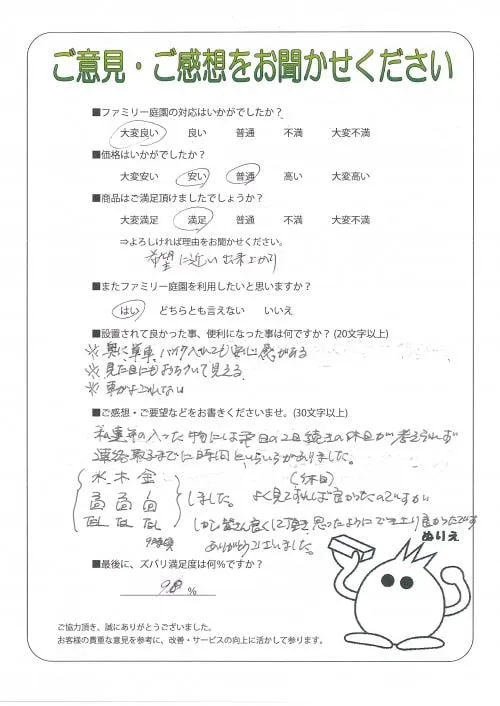 ご意見・ご感想をお聞かせください
■ファミリー庭園の対応はいかがでしたか？
大変良い 良い 普通 不満 大変不満
■価格はいかがでしたか？
大変安い 安い 普通 高い 大変高い
■商品はご満足頂けましたでしょうか？
大変満足 満足 普通 不満 大変不満
⇒よろしければ理由をお聞かせください。
希望に近い出来上がり
■またファミリー庭園を利用したいと思いますか？
はい どちらとも言えない いいえ
■設置されて良かった事、便利になった事は何ですか？(20文字以上)
※奥に単車、バイク入れても 感がある
※見た目にもおちついて見える
※車がよごれない
■ご感想・ご要望などをお書きくださいませ。(30文字以上)
の入った物には 日の2日続きの休日が考えられず
連絡取るまでに時間といらいらがありました。
水、木、金 (休日)
しました。よく見てすれば良かったのですが
TEL TEL TEL しかし皆さん良くして頂き思ったようにでき上り良かったです
ありがとうございました。
■最後に、ズバリ満足度は何％ですか？
98 %
ぬりえ
ご協力頂き、誠にありがとうございました。
お客様の貴重な意見を参考に、改善・サービスの向上に活かして参ります。